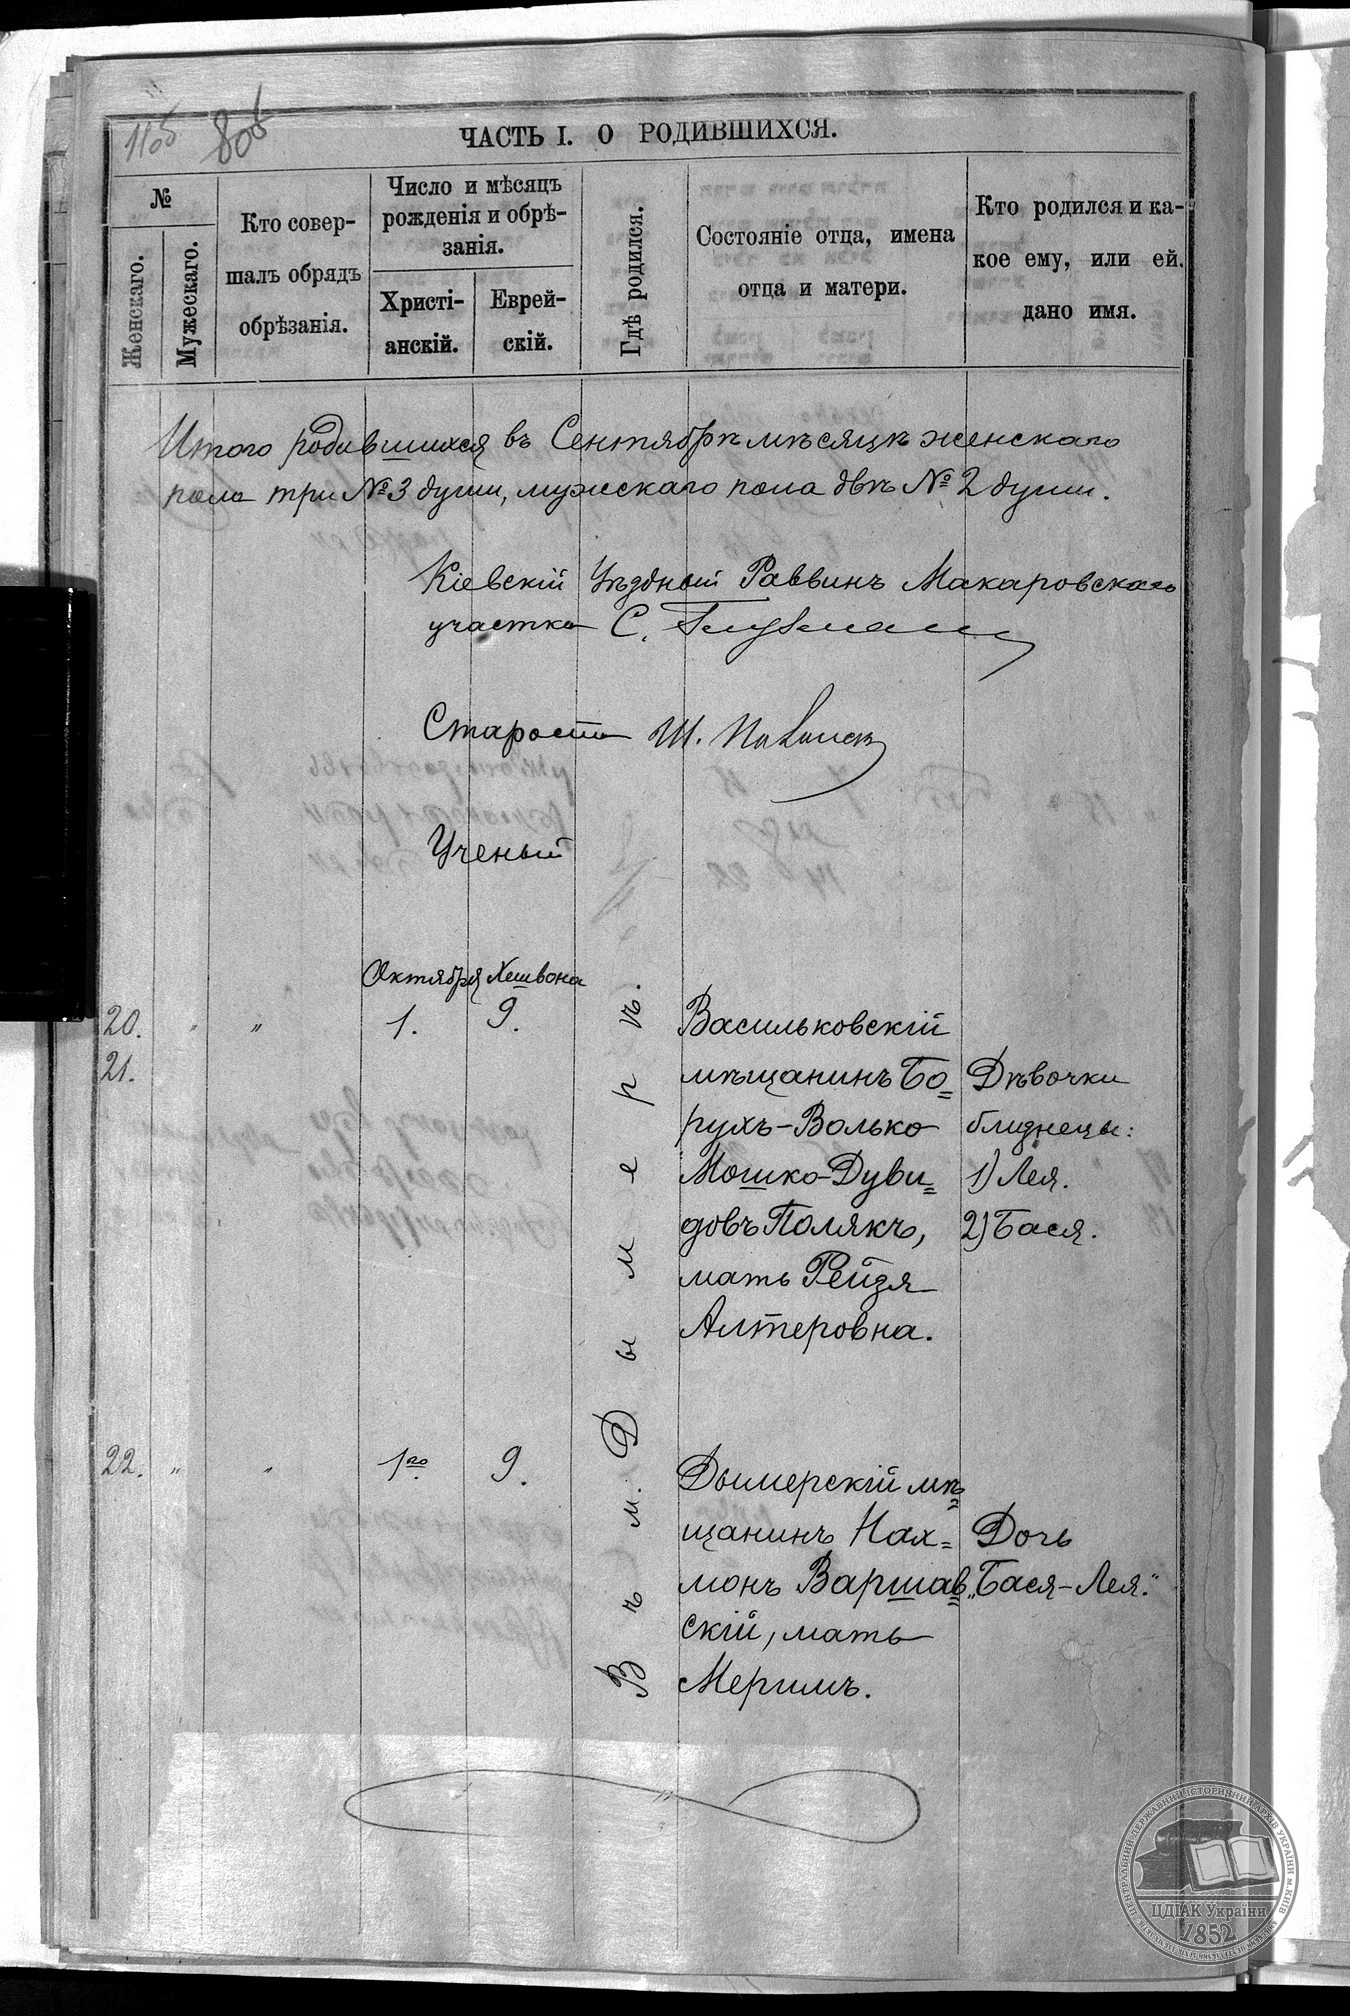 11об 80об
ЧАСТЬ I. О РОДИВШИХСЯ.
№
Женскаго.
Мужескаго.
Кто совер-
шалъ обрядъ
обрѣзанія.
Число и мѣсяцъ
рожденія и обрѣ-
занія.
Христі-
анскій.
Еврей-
скій.
Гдѣ родился.
Состояніе отца, имена
отца и матери.
Кто родился и ка-
кое ему, или ей.
дано имя.
Итого родившихся въ Сентябрѣ мѣсяцѣ женскаго
пола три №3 души, мужскаго пола двѣ №2 души.
Кіевскій Уѣздный Раввинъ Макаровскаго
участка С.
Староста Ш.
Ученый
Октября Хешвона
20. " " 1. 9.
21.
Васильковскій
мѣщанинъ Бо=
рухъ-Волько
Мошко-Дуви=
довъ Полякъ,
мать Рейзя
Алтеровна.
Дѣвочки
близнецы:
1) Лея.
2) Бася.
Въ м. Дымерѣ.
22. " " 1го 9.
Дымерскій мѣ=
щанинъ Нах=
монъ Варшав=
скій, мать
Меримъ.
Дочь
„Бася-Лея."
ЦЕНТРАЛЬНИЙ ДЕРЖАВНИЙ ІСТОРИЧНИЙ АРХІВ УКРАЇНИ М.КИЇВ
ЦДІАК України
1852